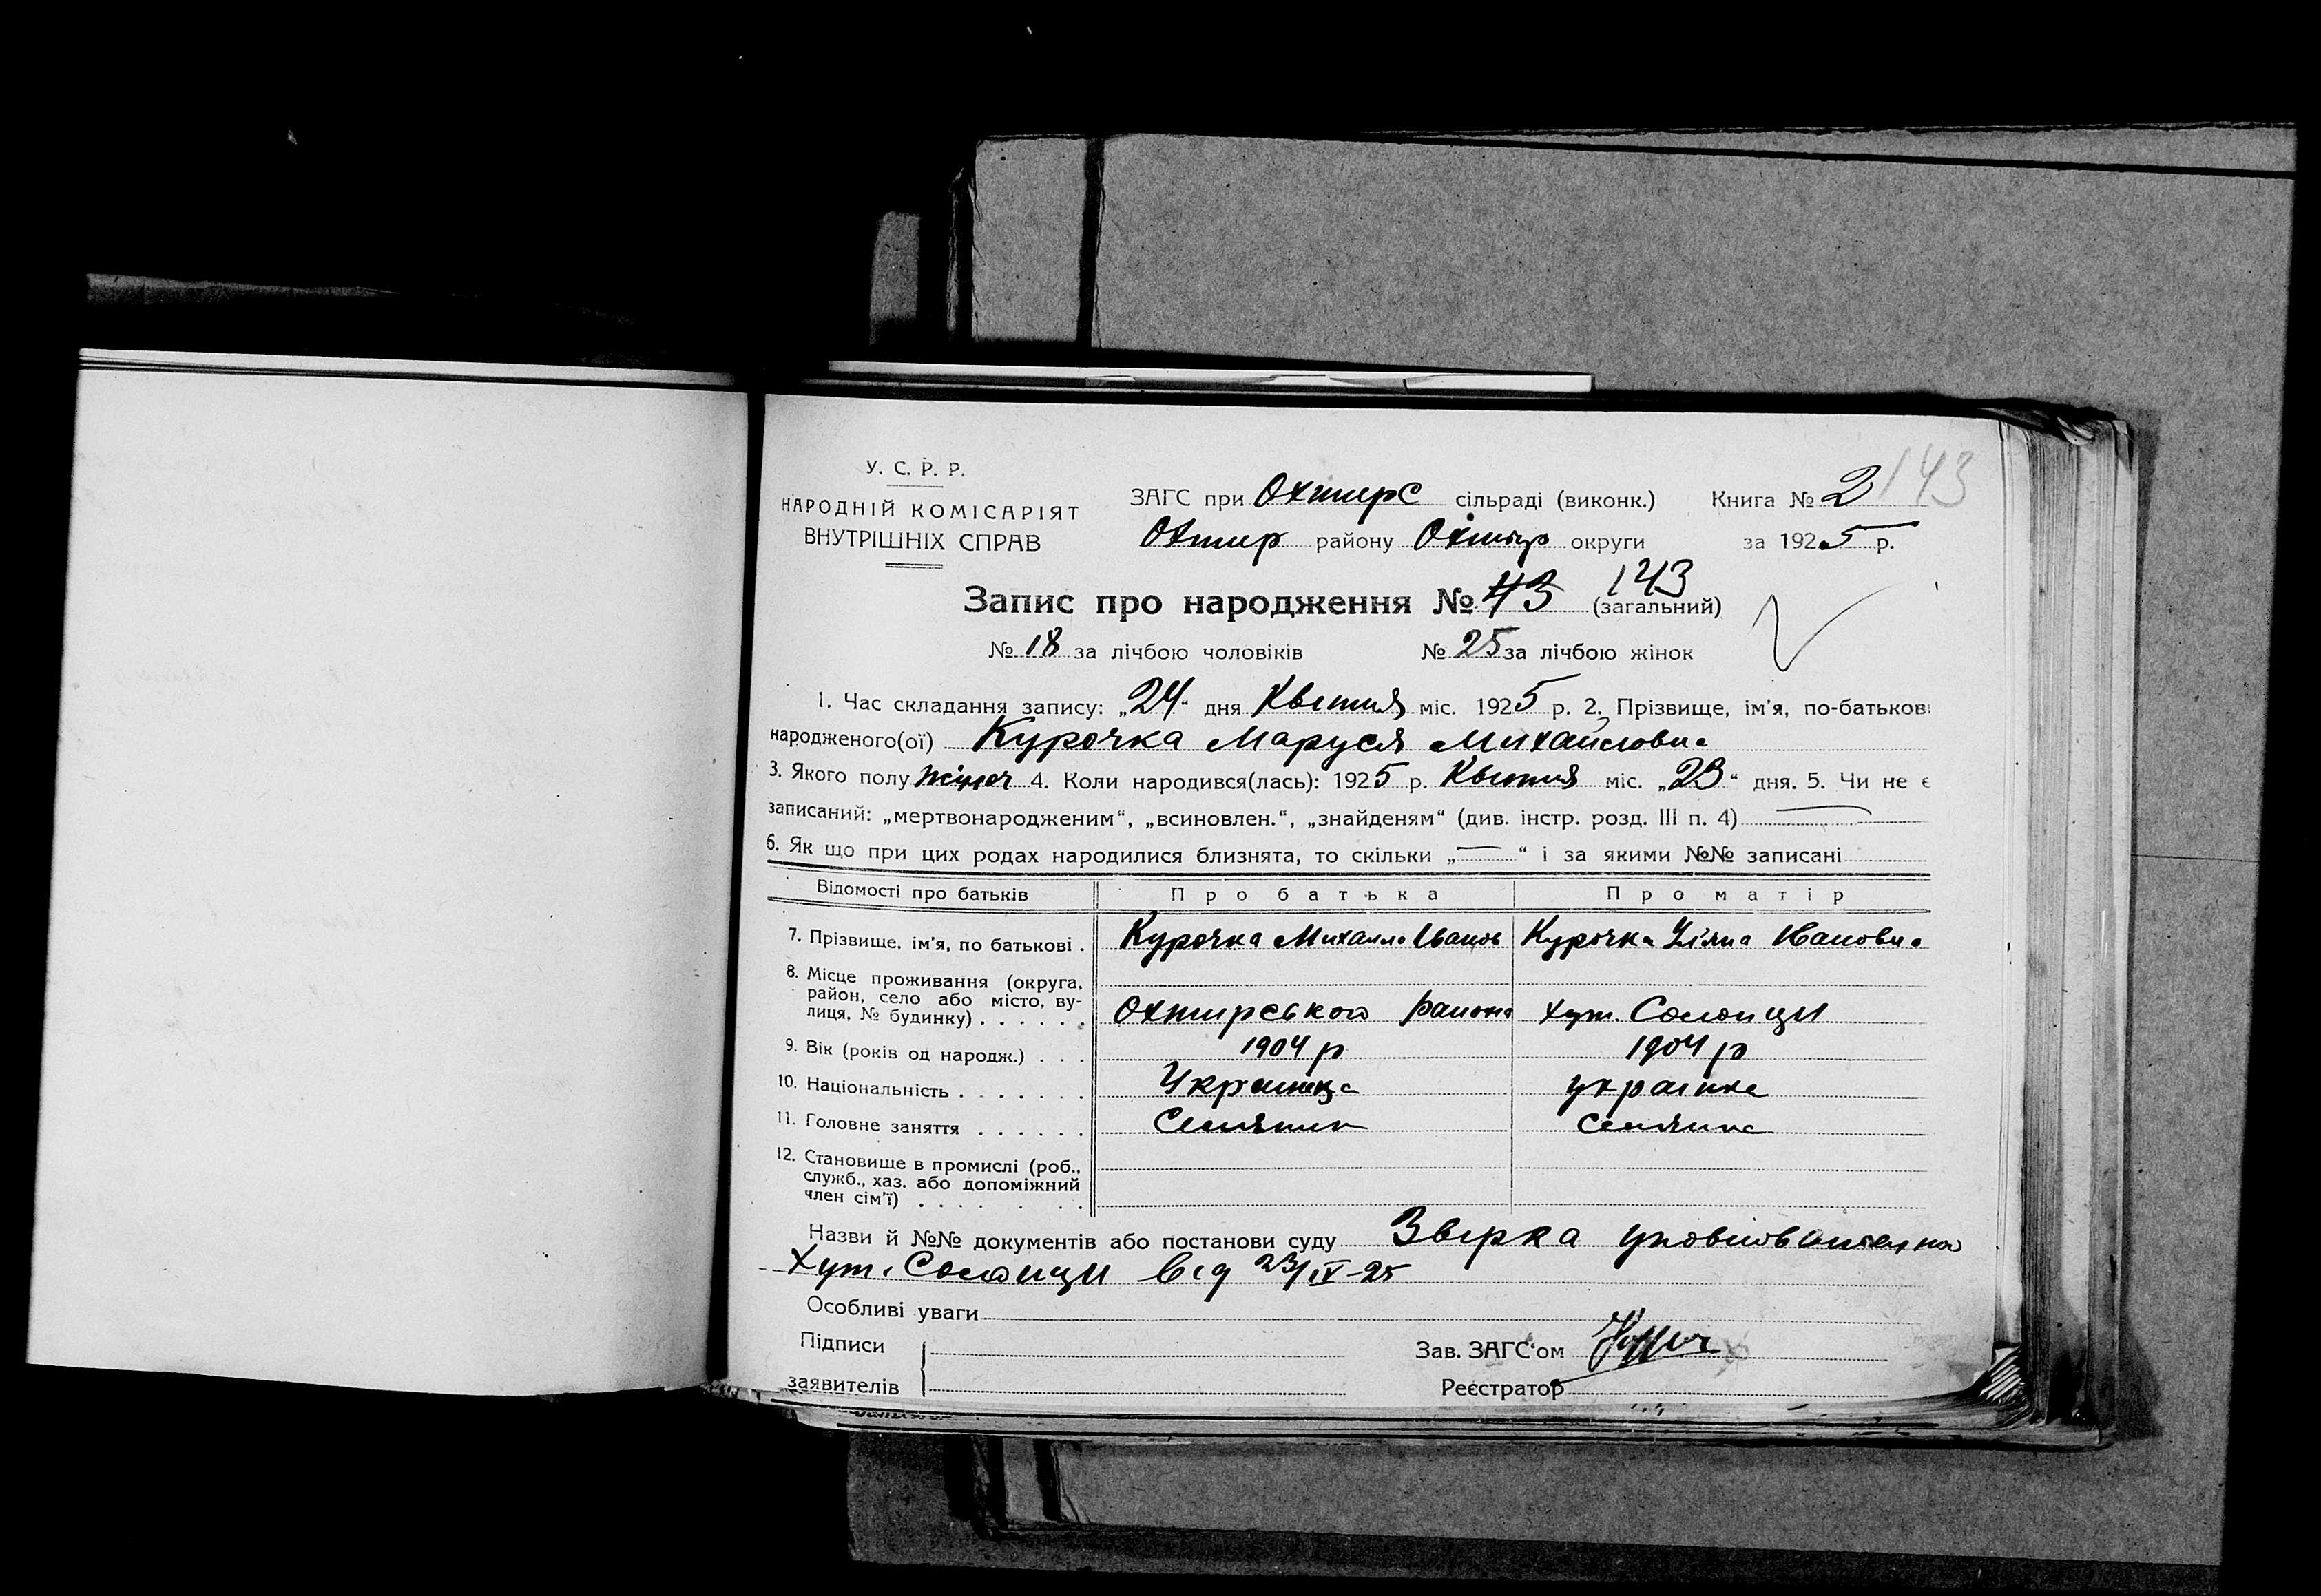 143
У. С. Р. Р.
НАРОДНІЙ КОМІСАРІЯТ
ВНУТРІШНІХ СПРАВ
ЗАГС при Охтирс сільраді (виконк.) Книга № 2
Охтир району Охтир округи за 1925 р.
143
Запис про народження № 43 (загальний)
№ 18 за лічбою чоловіків № 25 за лічбою жінок
1. Час складання запису: „24“ дня Квітня міс. 1925 р. 2. Прізвище, ім'я, по-батькові
народженого(ої) Курочка Маруся Михайловна
3. Якого полу жіноч 4. Коли народився(лась): 1925 р. Квітня міс. „23“ дня. 5. Чи не є
записаний: „мертвонародженим“, „всиновлен.“, „знайденям“ (див. інстр. розд. III п. 4)
6. Як що при цих родах народилися близнята, то скільки „—“ і за якими №№ записані
Відомості про батьків Про батька Про матір
7. Прізвище, ім'я, по батькові . Курочка Михайло Іванов Курочка Уляна Ивановна
8. Місце проживання (округа,
район, село або місто, ву-
лиця, № будинку) . . . . . . Охтирського району хут. Солонци
9. Вік (років од народж.) . . . 1904 р 1904 р
10. Національність . . . . . . . Українця українка
11. Головне заняття . . . . . . Селянин селянка
12. Становище в промислі (роб.,
служб., хаз. або допоміжний
член сім'ї) . . . . . . .
Назви й №№ документів або постанови суду Звірка
Хут. Солонци від 23/IV-25
Особливі уваги
Підписи
заявителів
Зав. ЗАГС'ом
Реєстратор